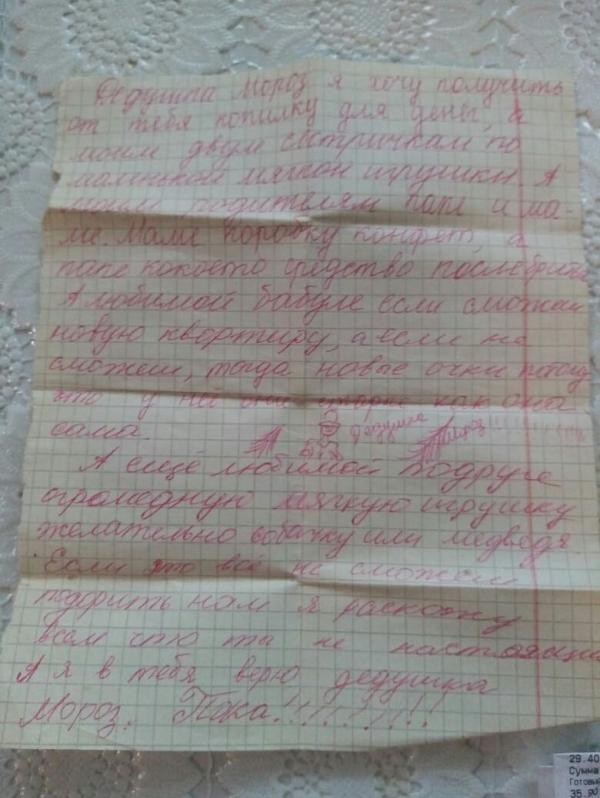 Дедушка Мороз я хочу получить
от тебя копилку для денег, а
моим двум систричкам по
маленькой мягкой игрушки. А
моим родителям папе и ма-
ме. Маме коробку конфет, а
папе какоето средство послебрит
А любимой бабуле если сможеш
новую квартиру, а если не
сможеш, тогда новые очки потому
что у неё они старые как она
сама. дедушка мороз!!!!!!!!
А ещё любимой подруге
огромедную мягкую игрушку
желательно собачку или медведя
Если это всё не сможеш
подорить нам я раскожу
всем што ты не настоящий
А я в тебя верю дедушка
Мороз. Пока!!!!!!!!!
29.40
Сумма
Готовые
35.00